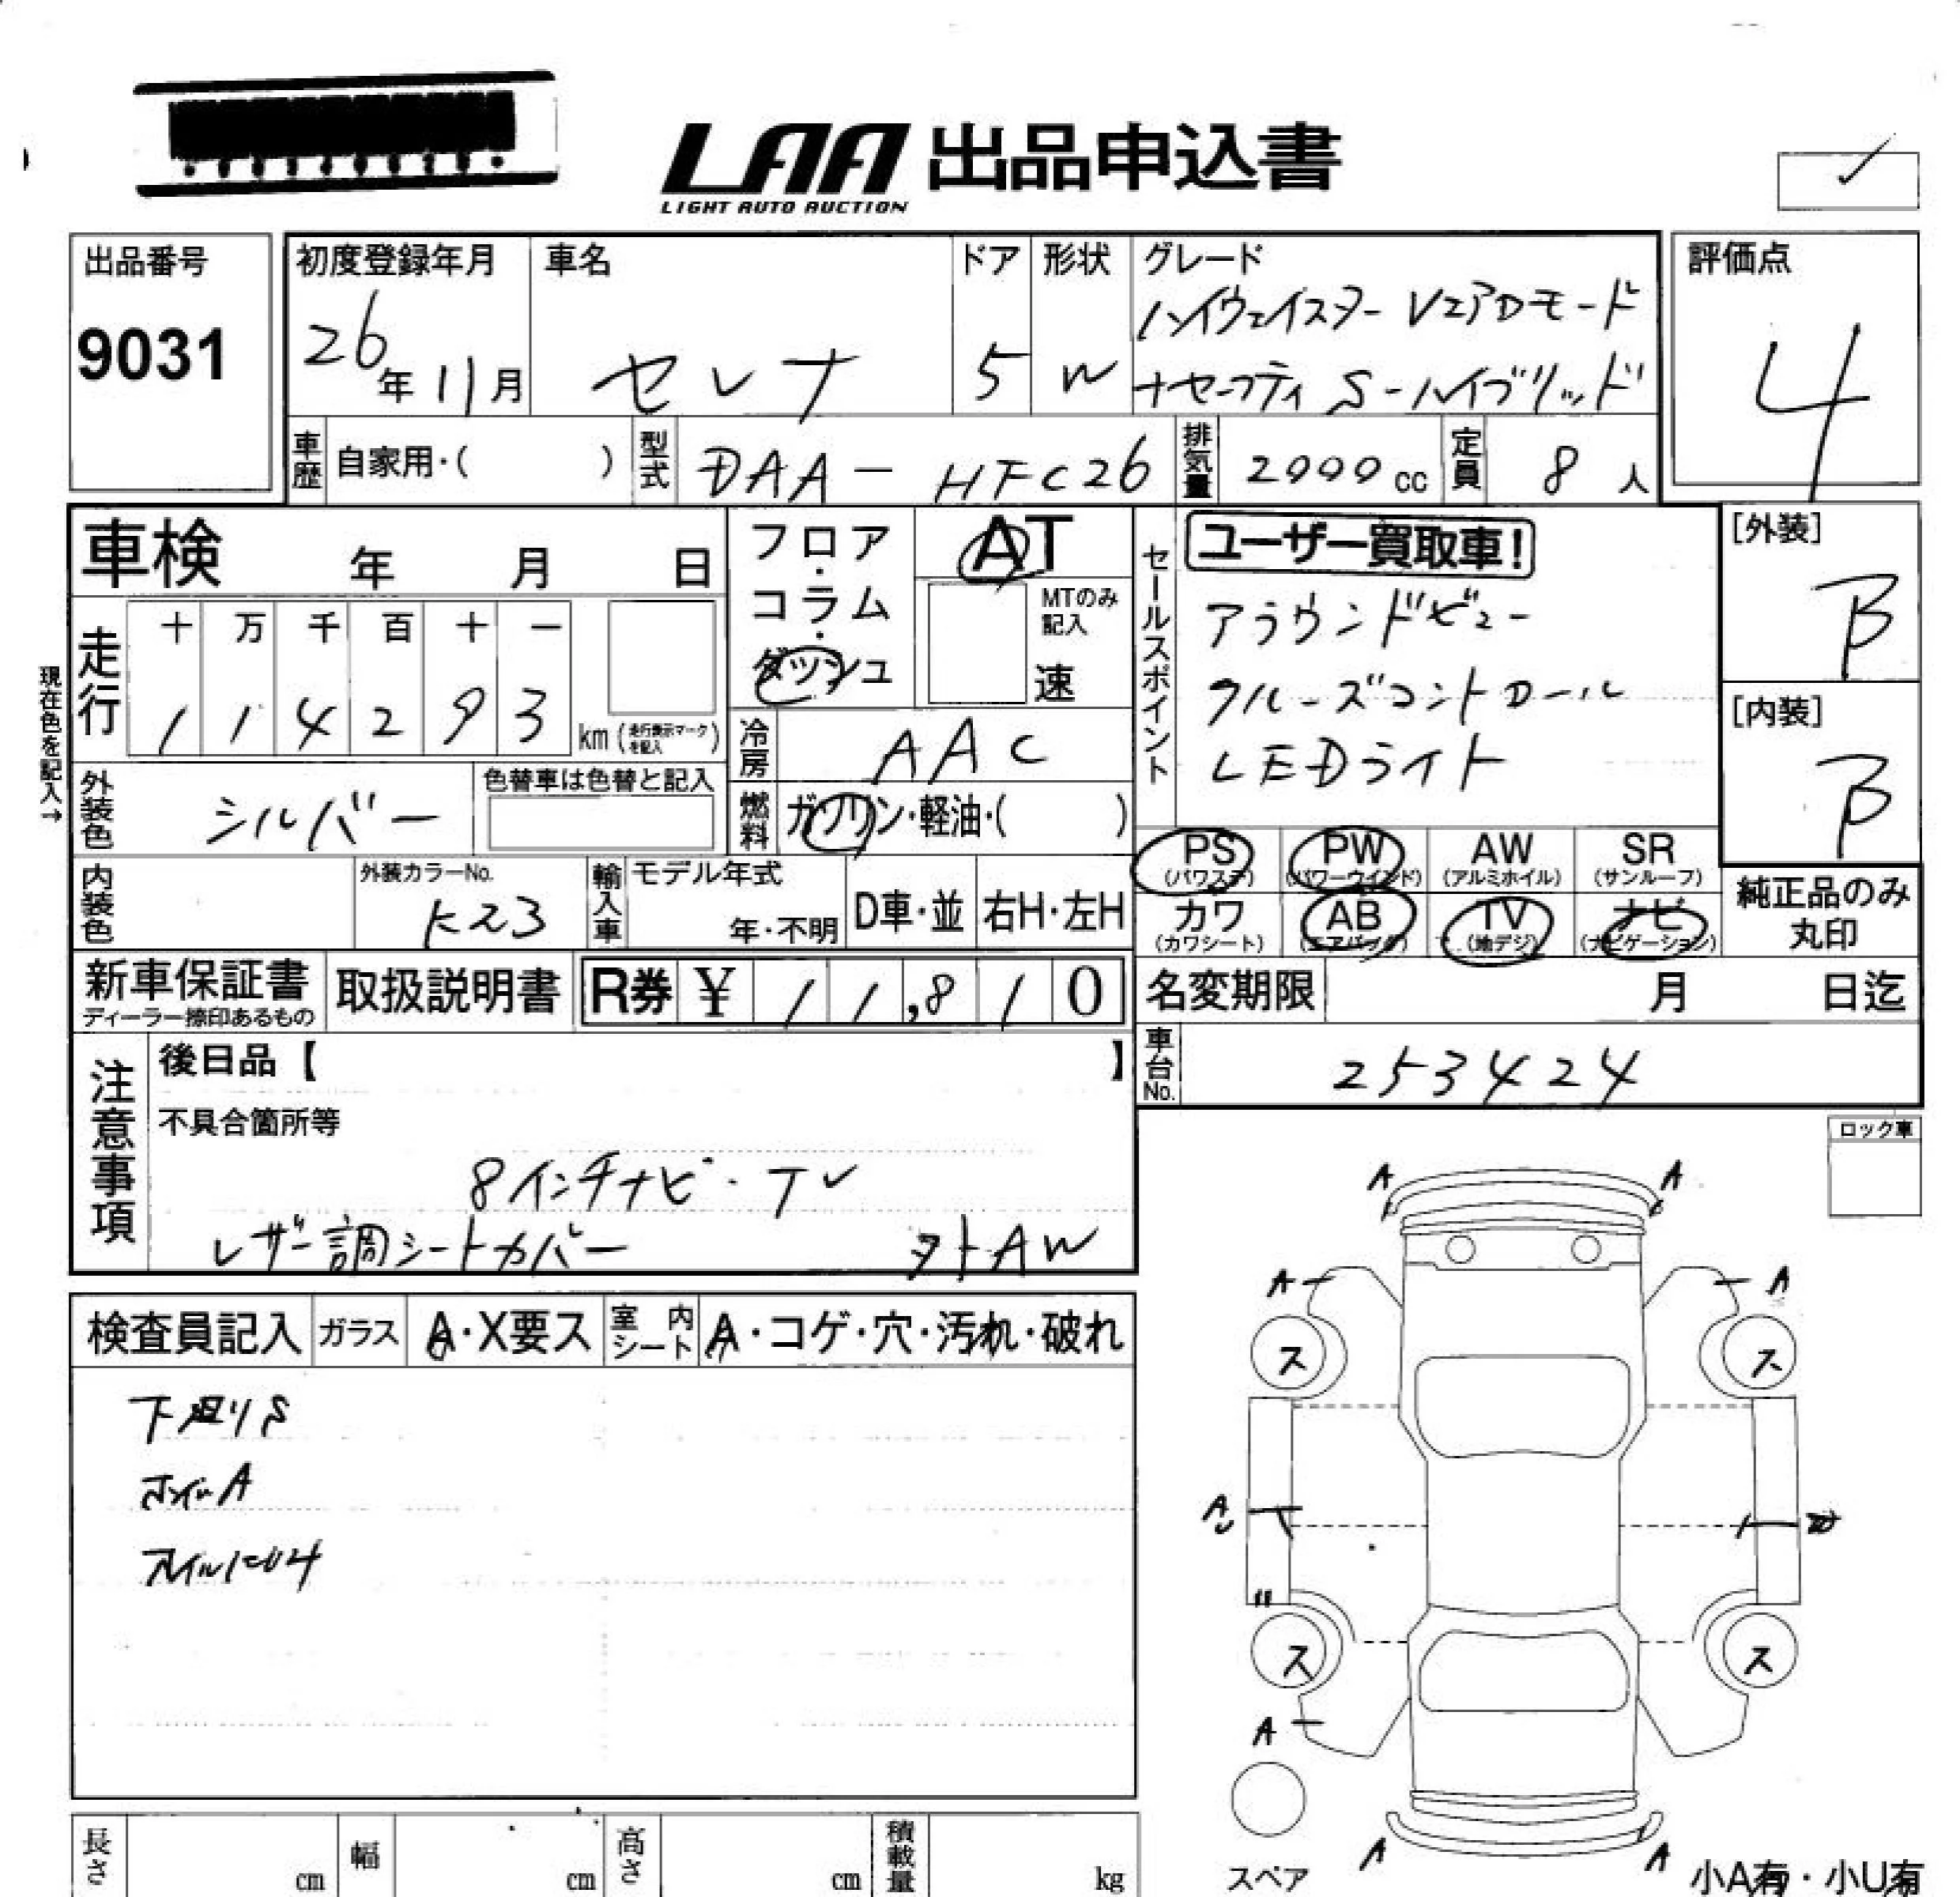 LAA 出品申込書
LIGHT AUTO AUCTION
出品番号 9031
初度登録年月 26年11月
車名 セレナ
ドア 5
形状 W
グレード ハイウェイスター Vエアロモード
+セーフティ S-ハイブリッド
評価点 4
車歴 自家用・( )
型式 DAA-HFC26
排気量 2000cc
定員 8人
車検 年 月 日
フロア・コラム・ダッシュ
AT
MTのみ記入 速
セールスポイント
ユーザー買取車!
アラウンドビュー
クルーズコントロール
LEDライト
[外装] B
[内装] B
現在色を記入→
走行 十 万 千 百 十 一
1 1 4 2 9 3 km (走行表示マークを記入)
冷房 AAC
外装色 シルバー
色替車は色替と記入
燃料 ガソリン・軽油・( )
内装色
外装カラーNo. K23
輸入車 モデル年式 年・不明
D車・並 右H・左H
PS (パワステ)
PW (パワーウインド)
AW (アルミホイル)
SR (サンルーフ)
カワ (カワシート)
AB (エアバッグ)
TV (地デジ)
ナビ (ナビゲーション)
純正品のみ丸印
新車保証書 ディーラー捺印あるもの
取扱説明書
R券 ¥ 11,810
名変期限 月 日迄
車台No. 253424
注意事項
後日品【 】
不具合箇所等
8インチナビ・TV
レザー調シートカバー 外AW
ロック車
検査員記入 ガラス A・X要ス 室内シート A・コゲ・穴・汚れ・破れ
下廻りS
A
A A
A A
ス ス
A
ス ス
A
A A
スペア
小A有・小U有
長さ cm 幅 cm 高さ cm 積載量 kg